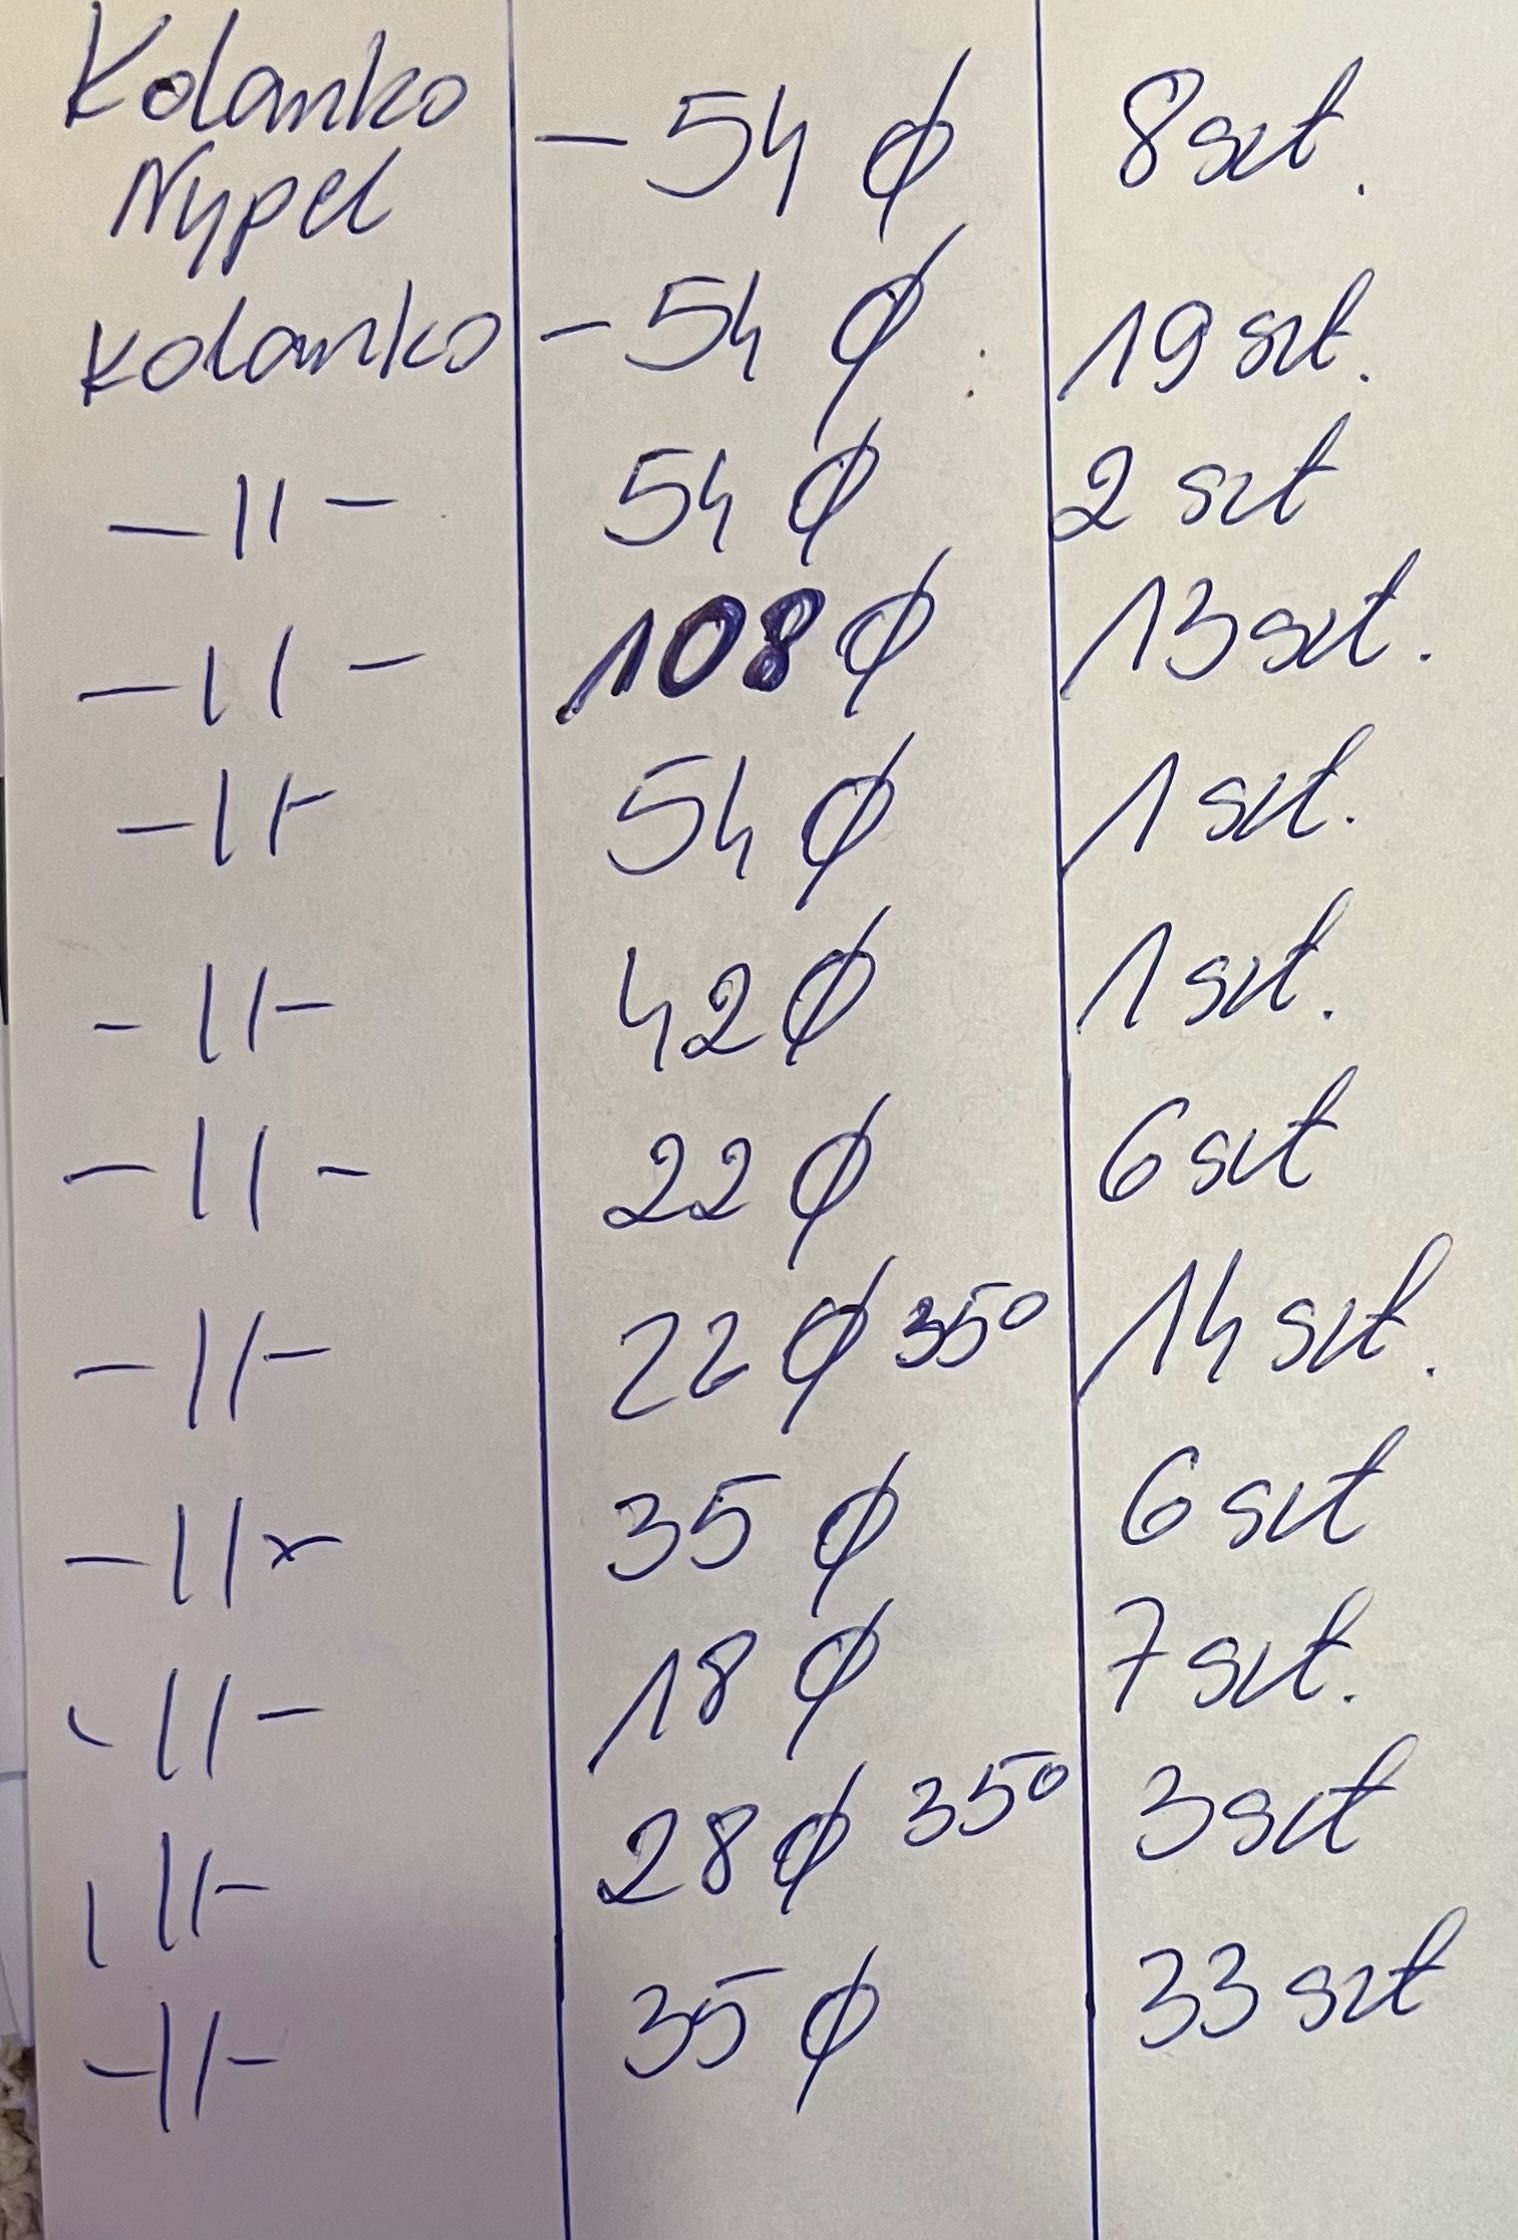 Kolanko - 54 ø 8 szt.
Nypel
Kolanko - 54 ø 19 szt.
-11- 54 ø 2 szt
-11- 108 ø 13 szt.
-11- 54 ø 1 szt.
-11- 42 ø 1 szt.
-11- 22 ø 6 szt
-11- 22 ø 35° 14 szt.
-11- 35 ø 6 szt
-11- 18 ø 7 szt.
-11- 28 ø 35° 3 szt
-11- 35 ø 33 szt